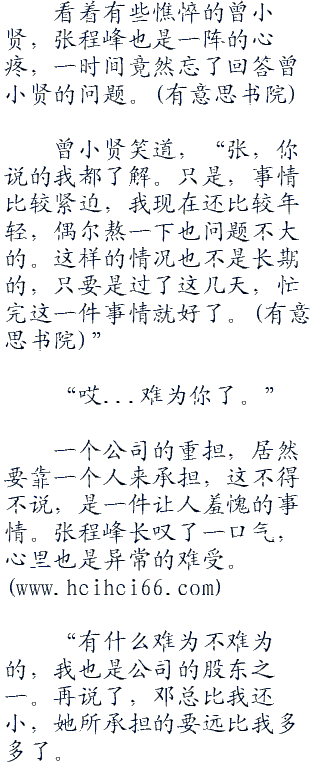 看着有些憔悴的曾小
贤，张程峰也是一阵的心
疼，一时间竟然忘了回答曾
小贤的问题。(有意思书院)
曾小贤笑道，“张，你
说的我都了解。只是，事情
比较紧迫，我现在还比较年
轻，偶尔熬一下也问题不大
的。这样的情况也不是长期
的，只要是过了这几天，忙
完这一件事情就好了。(有意
思书院)”
“哎...难为你了。”
一个公司的重担，居然
要靠一个人来承担，这不得
不说，是一件让人羞愧的事
情。张程峰长叹了一口气，
心里也是异常的难受。
(www.hcihci66.com)
“有什么难为不难为
的，我也是公司的股东之
一。再说了，邓总比我还
小，她所承担的要远比我多
多了。